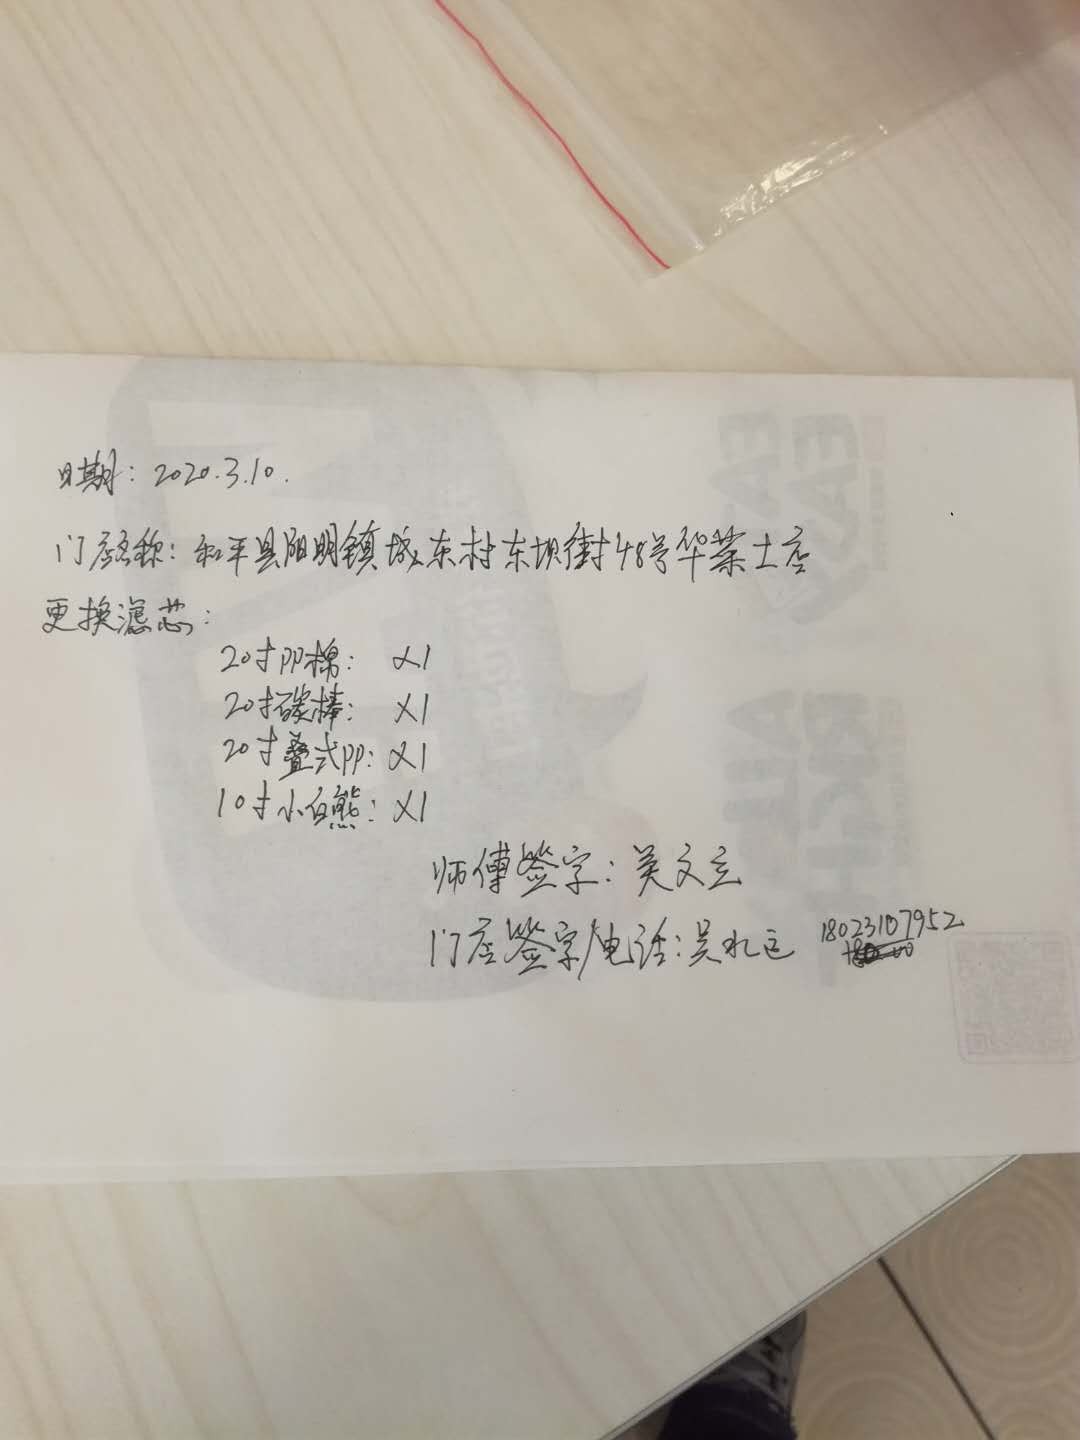 日期：2020.3.10.
门店名称：和平县阳明镇城东村东坝街48号华莱士店
更换滤芯：
20寸PP棉：X1
20寸碳棒：X1
20寸叠式PP：X1
10寸小白熊：X1
师傅签字：吴文立
18023107952
门店签字/电话：吴